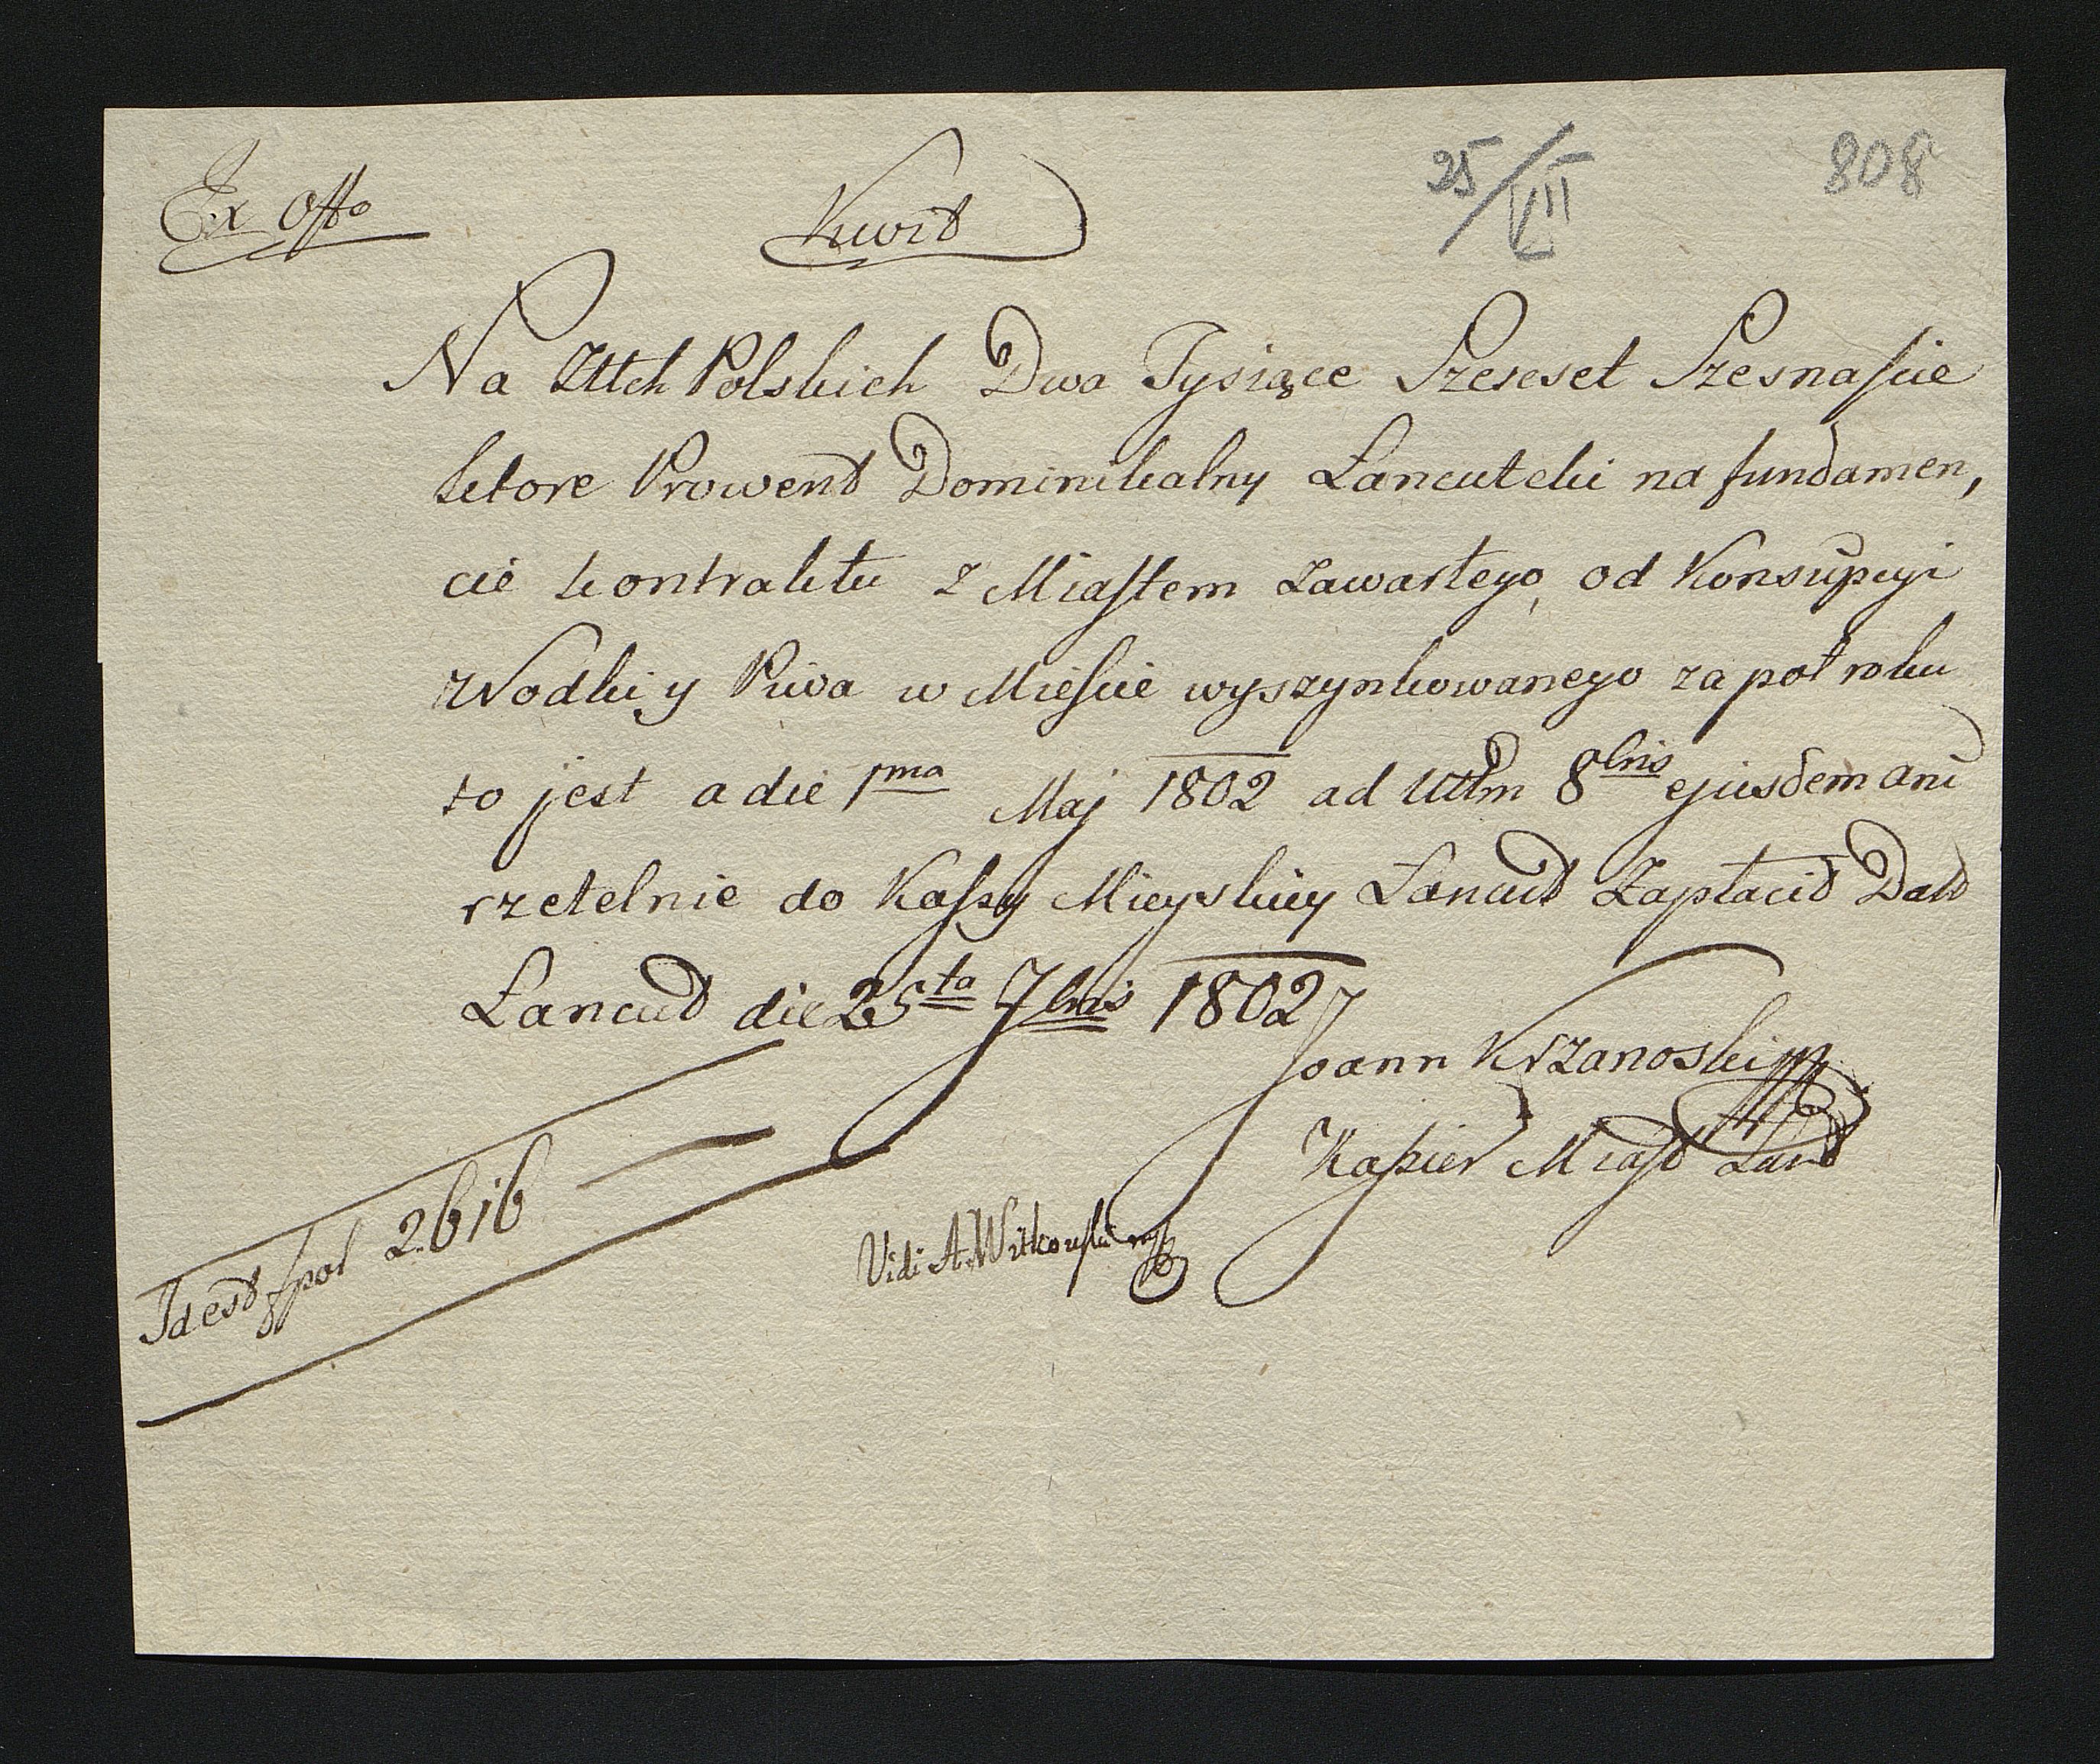 Ex Offo
Kwit
25/VII
808
Na Złłch Polskich Dwa Tysiące Szescset Szesnascie
ktore Prowent Dominikalny Łancutcki na fundamen,
cie kontraktu z Miastem zawartego, od Konsupcyi
Wodki y Piwa w Miescie wyszynkowanego za poł roku
to jest a die 1ma Maj 1802 ad Ultm 8bris ejusdem ani
rzetelnie do Kassy Mieyskiey Łancut Zapłacił Datt
Łancut die 25ta 7bris 1802
Joann Krzanoski mp
Kassier Miast Łant
Id est fpol 2616
Vidi A. Witkowski mp